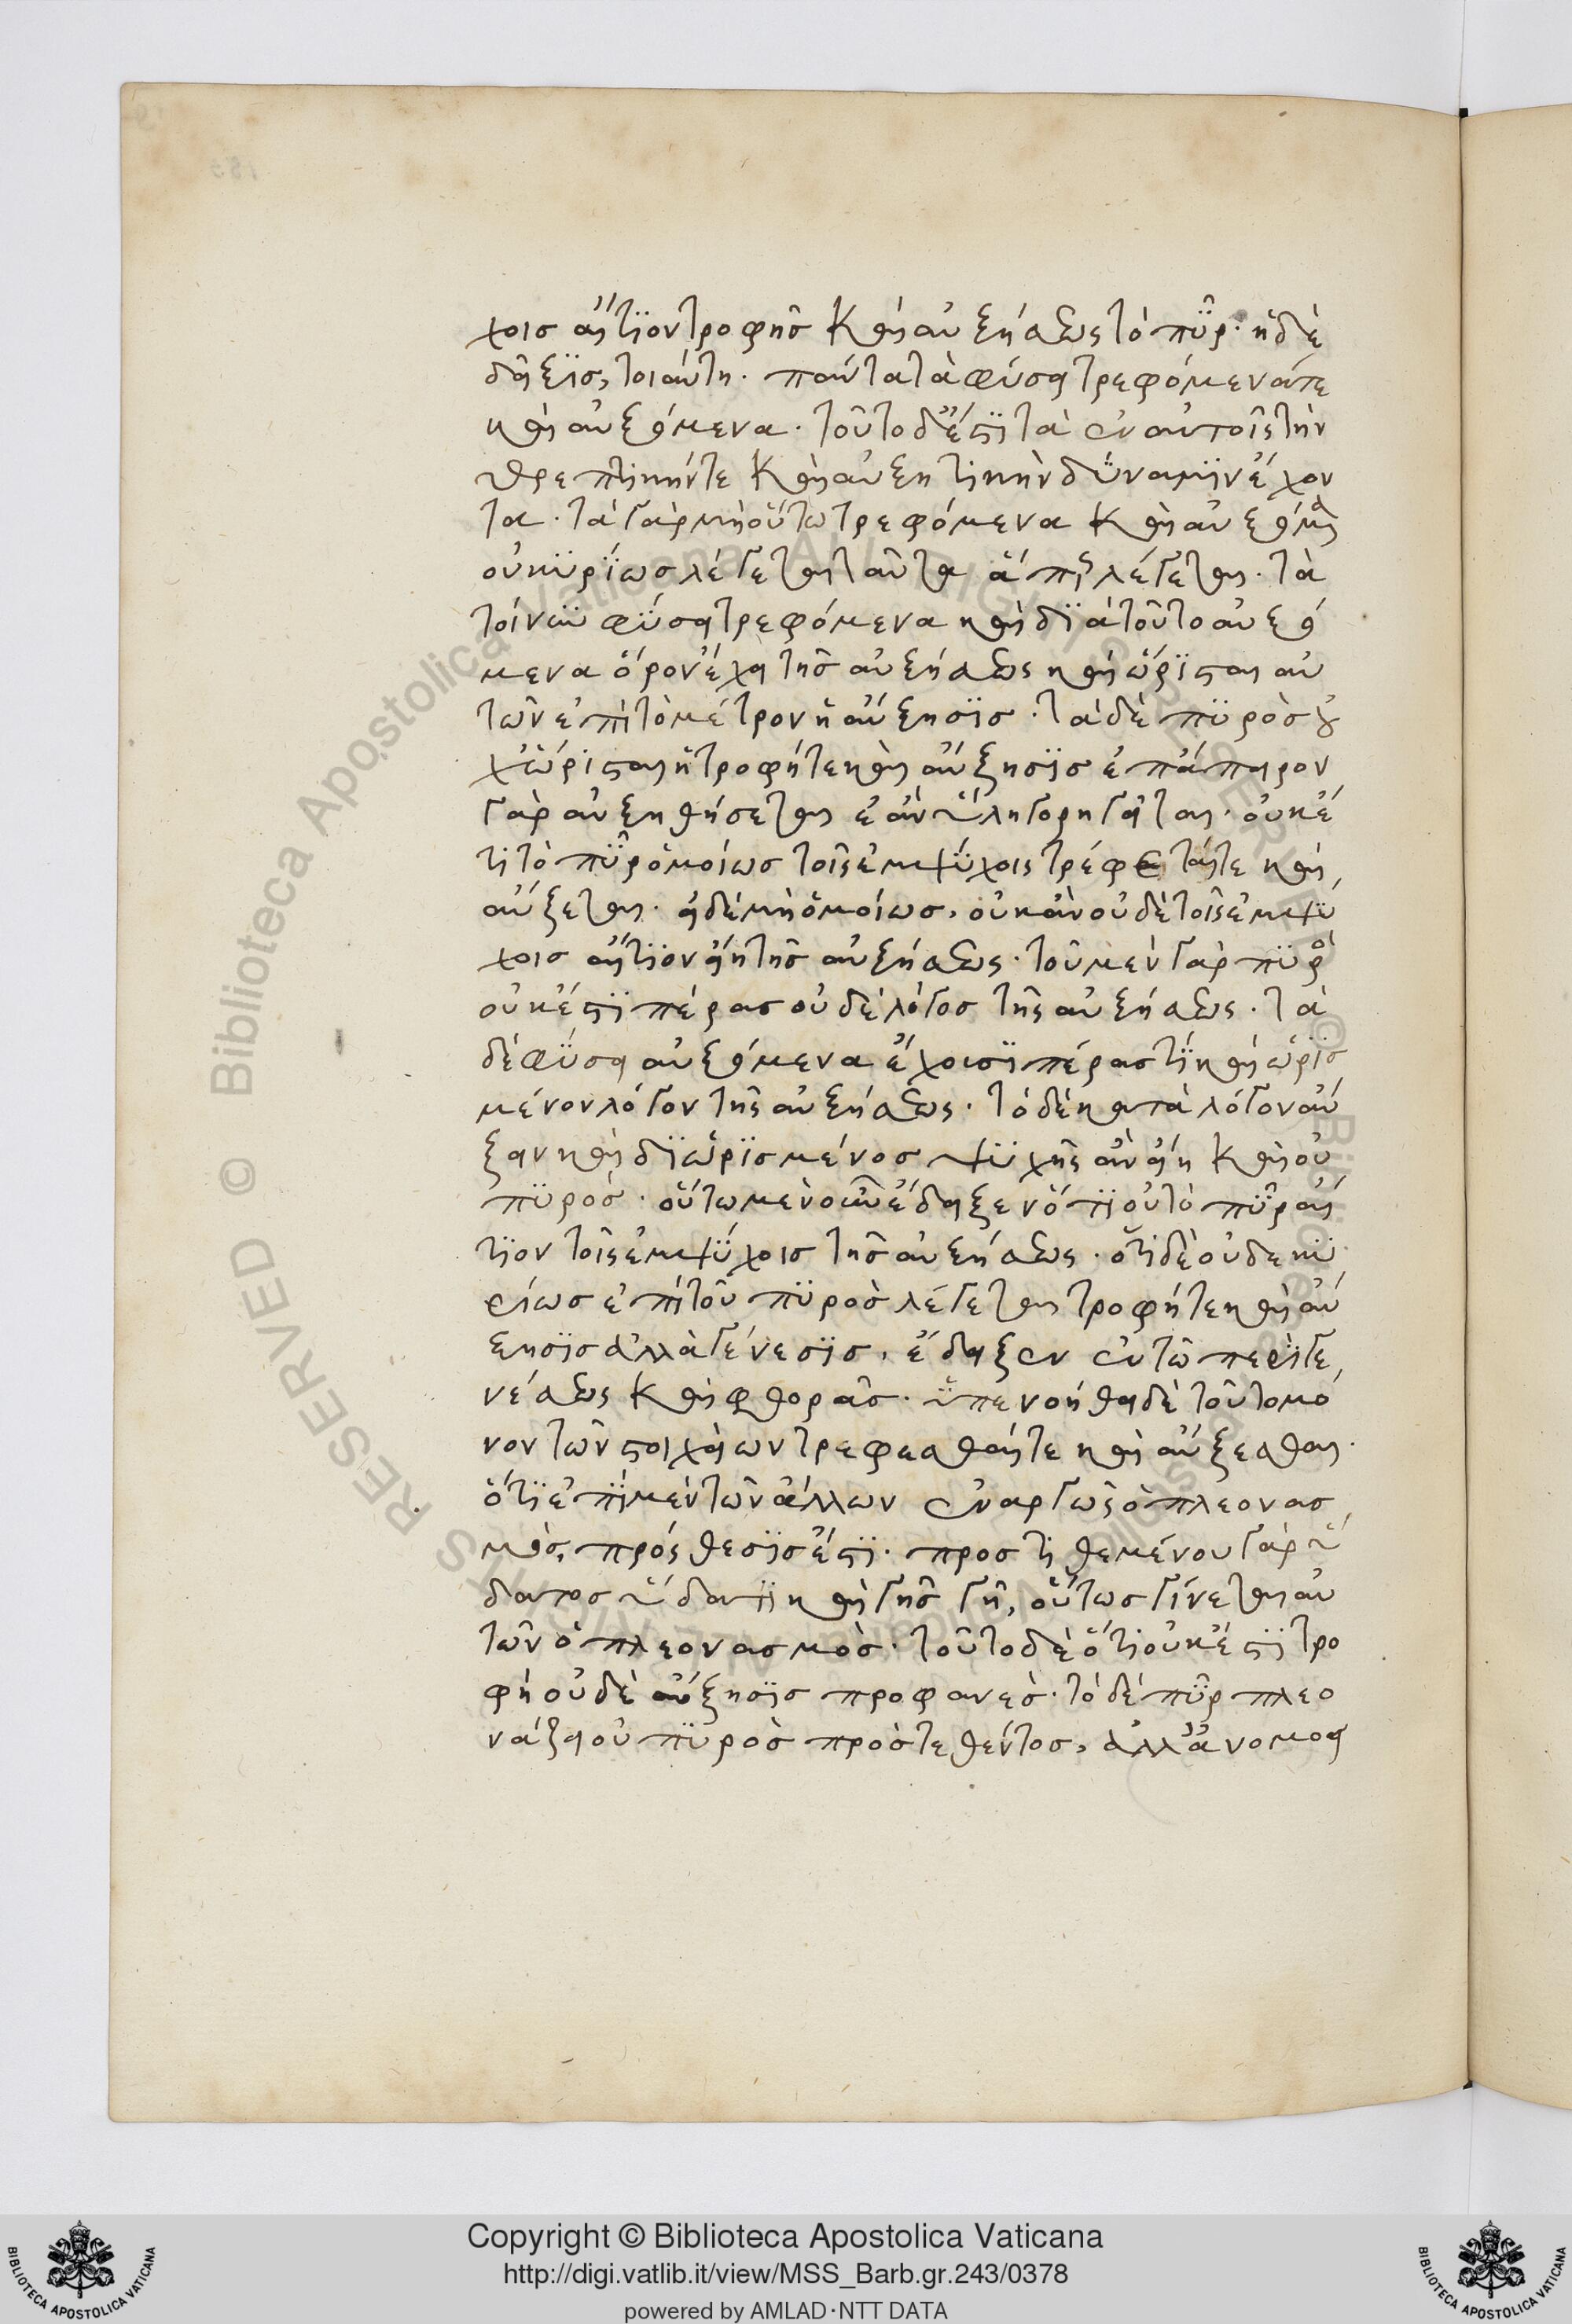 χοισ αἴτϊον τροφῆσ καὶ αὐξήσεως τὸ πῦρ· ἡ δὲ
δεῖξϊσ, τοιαύτη· πάντα τὰ φύσει τρεφόμενά τε
καὶ αὐξόμενα· τοῦτο δ' ἔστϊ τὰ ἐν αὐτοῖς τὴν
θρεπτικήν τε καὶ αὐξητικὴν δύναμϊν ἔχον
τα· τὰ γὰρ μὴ οὕτω τρεφόμενα καὶ αὐξόμενα
οὐ κϋρίωσ λέγεται ταῦτα ἅπερ λέγεται· τὰ
τοίνυν φύσει τρεφόμενα καὶ δϊὰ τοῦτο αὐξό
μενα ὅρον ἔχει τῆσ αὐξήσεως καὶ ὥρϊσται αὐ
τῶν ἐπὶ τὸ μέτρον ἡ αὔξησϊσ· τὰ δὲ πϋρὸσ οὐ
χ ὥρισται ἡ τροφή τε καὶ αὔξησϊσ ἐπ' ἄπειρον
γὰρ αὐξηθήσεται ἐὰν ὕλη χορηγεῖται· οὐκ ἔ
τϊ τὸ πῦρ ὁμοίωσ τοῖς ἐμψύχοις τρέφεταί τε καὶ
αὔξεται· εἰ δὲ μὴ ὁμοίωσ, οὐκ ἂν οὐδὲ τοῖς ἐμψϋ
χοισ αἴτϊον εἴη τῆσ αὐξήσεως· τοῦ μὲν γὰρ πϋρὸς
οὐκ ἔστϊ πέρασ οὐδὲ λόγοσ τῆς αὐξήσεως· τὰ
δὲ φύσει αὐξόμενα ἔχουσϊ πέρας τϊ καὶ ὡρϊσ
μένον λόγον τῆς αὐξήσεως· τὸ δὲ κατὰ λόγον αὔ
ξειν καὶ δϊωρϊσμένοσ ψϋχῆς ἂν εἴη καὶ οὐ
πϋρόσ· οὕτω μὲν οὖν ἔδειξεν ὅτϊ οὐ τὸ πῦρ αἴ
τϊον τοῖς ἐμψύχοισ τῆσ αὐξήσεως· ὅτϊ δὲ οὐδὲ κϋ
ρίωσ ἐπὶ τοῦ πϋρὸσ λέγεται τροφή τε καὶ αὔ
ξησϊσ ἀλλὰ γένεσϊσ, ἔδειξεν ἐν τῶ περὶ γε
νέσεως καὶ φθορᾶσ· ὑπενοήθη δὲ τοῦτο μό
νον τῶν στοιχείων τρέφεσθαί τε καὶ αὔξεσθαι·
ὅτϊ ἐπὶ μὲν τῶν ἄλλων ἐναργῶς ὁ πλεονασ
μὸσ, πρόςθεσϊσ ἔστϊ· προστϊθεμένου γὰρ ὕ
δατοσ ὕδατϊ καὶ γῆσ γῆ, οὕτωσ γίνεται αὐ
τῶν ὁ πλεονασμόσ· τοῦτο δὲ ὅτϊ οὐκ ἔστϊ τρο
φὴ οὐδὲ αὔξησϊσ προφανέσ· τὸ δὲ πῦρ πλεο
νάζει οὐ πϋρὸσ προστεθέντοσ, ἀλλ' ἀνομοι
Copyright © Biblioteca Apostolica Vaticana
http://digi.vatlib.it/view/MSS_Barb.gr.243/0378
powered by AMLAD·NTT DATA